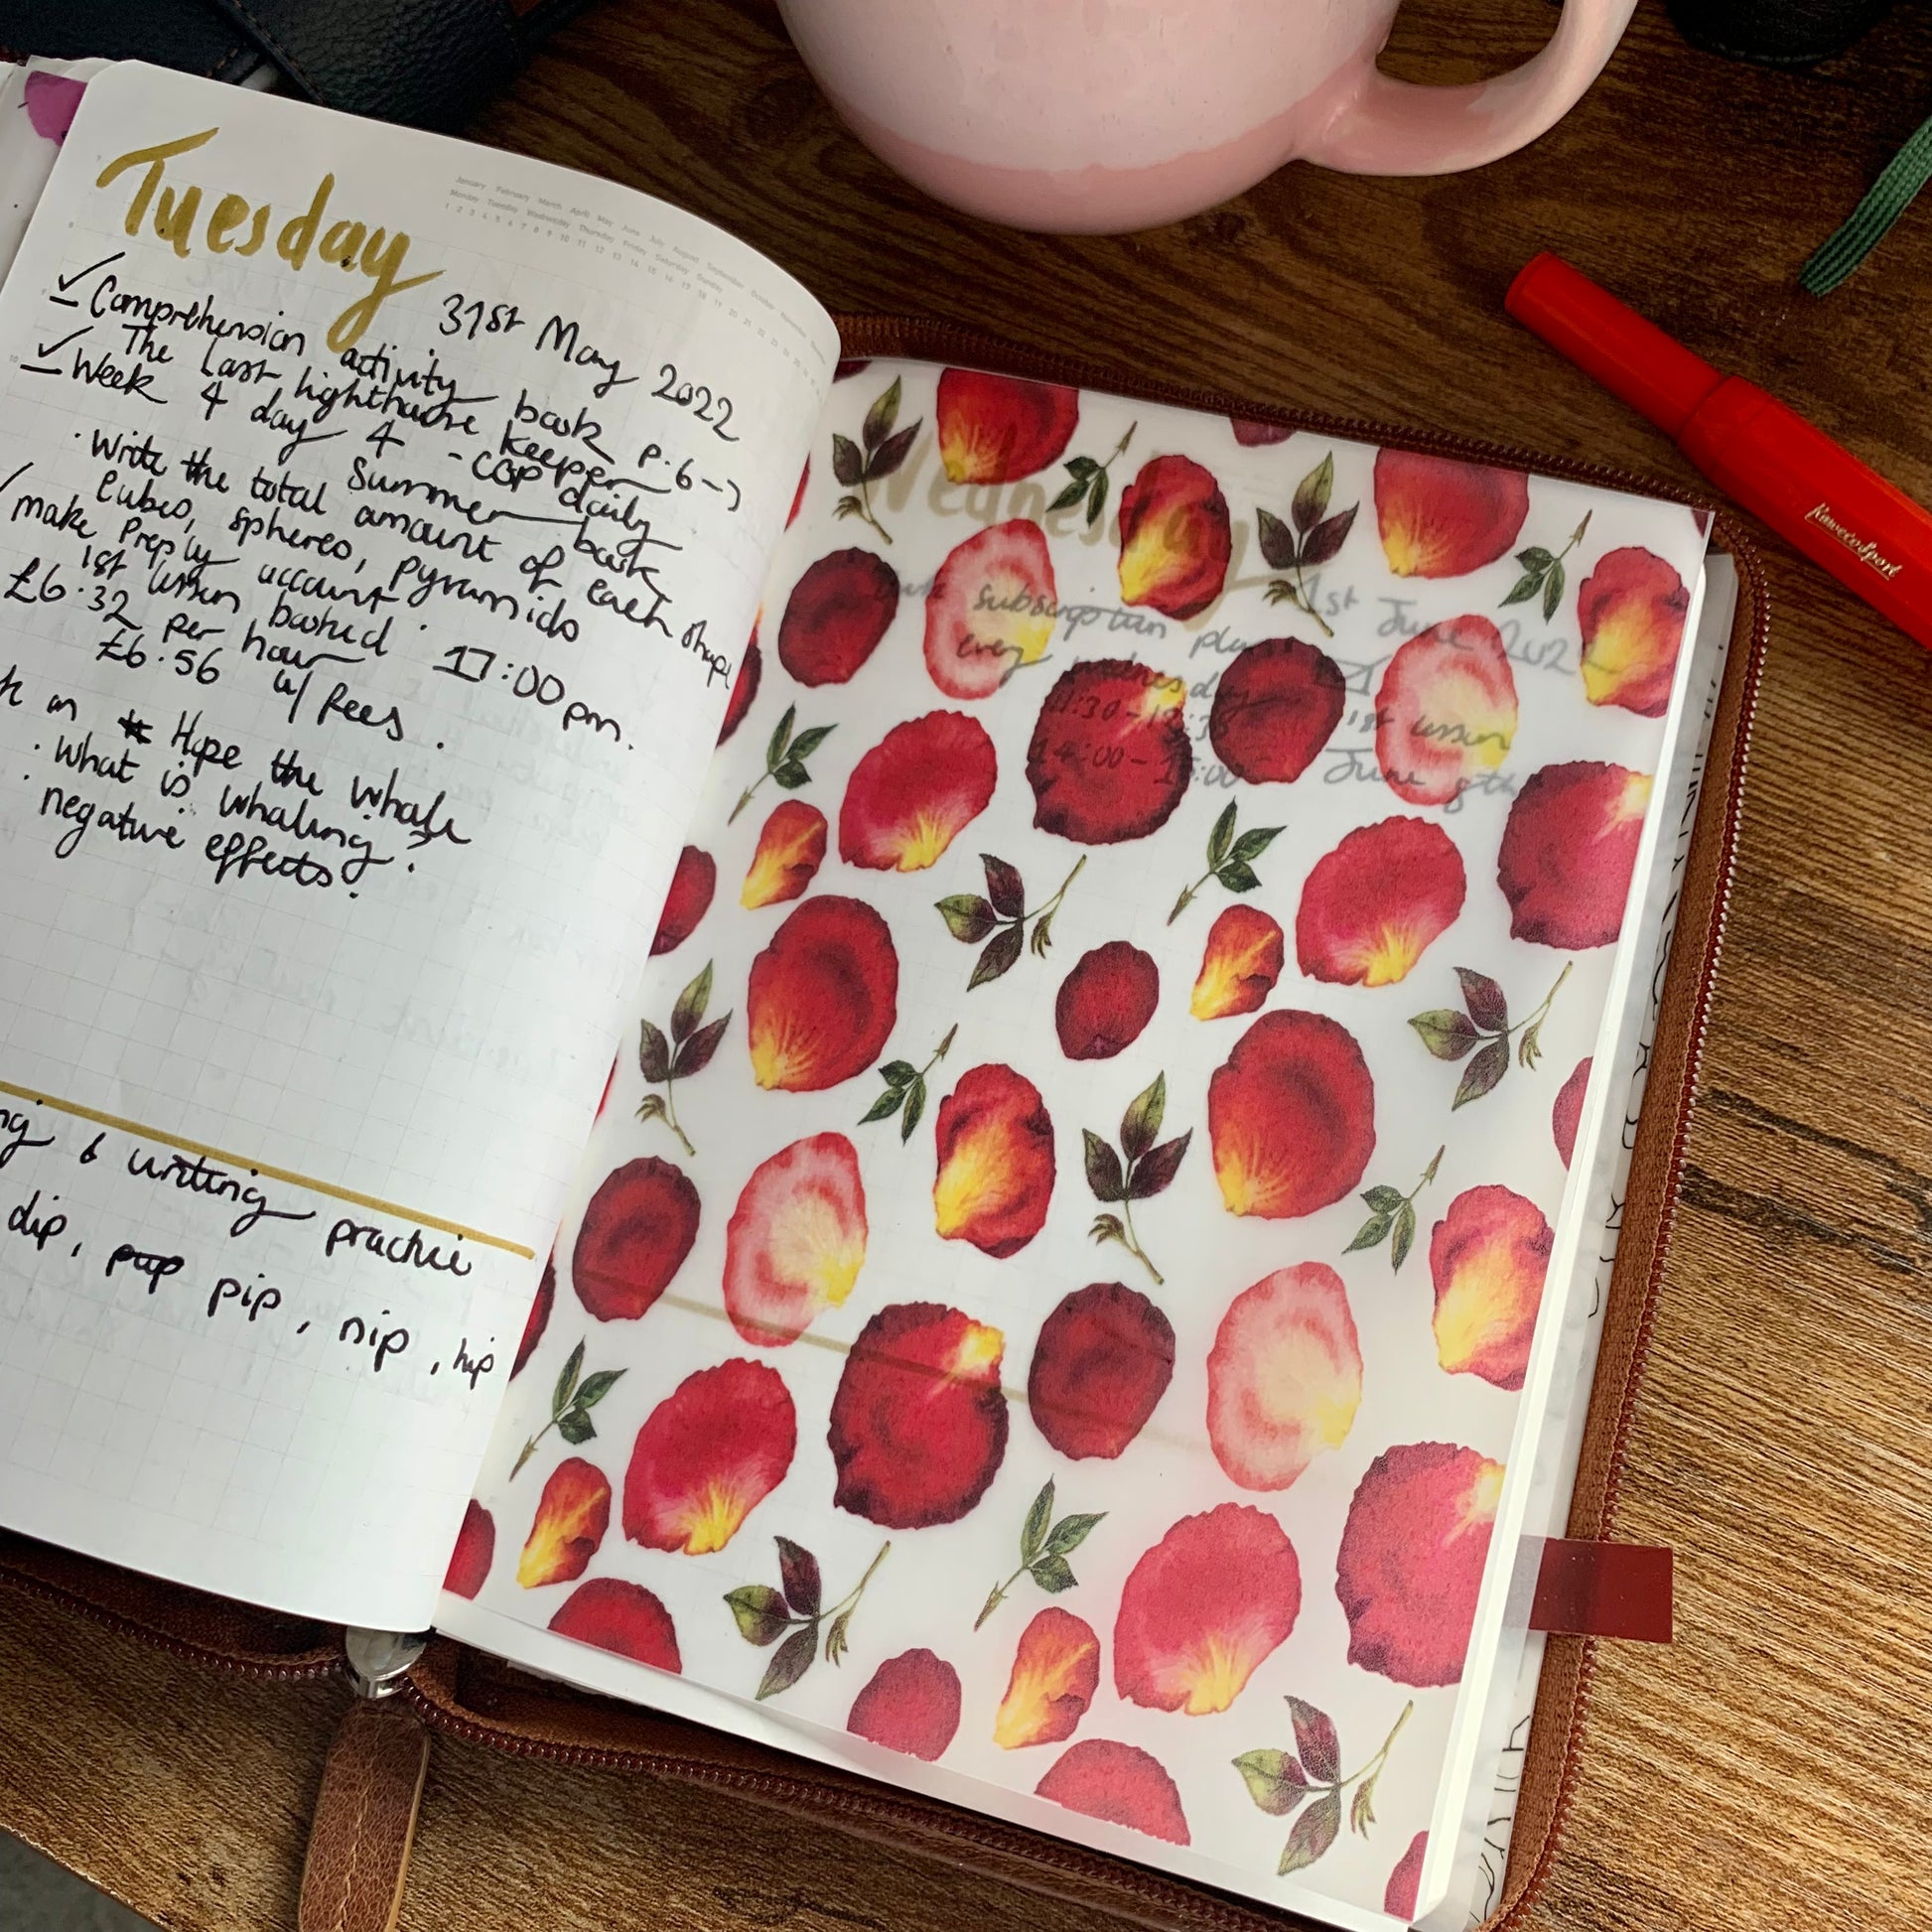 Tuesday
January February March April May June July August September October November
Monday Tuesday Wednesday Thursday Friday Saturday Sunday
1 2 3 4 5 6 7 8 9 10 11 12 13 14 15 16 17 18 19 20 21 22 23 24 25 26
31st May 2022
Comprehension activity book p.6->
The Last Lighthouse keeper
Week 4 day 4 - CGP daily
Summer book
· Write the total amount of each shape
cubes, spheres, pyramids
make Preply account
1st lesson booked 17:00pm.
£6.32 per hour
£6.56 w/ fees.
on Hope the whale
· What is whaling?
· negative effects.
& writing practice
dip, pap pip, nip, hip
Wednesday
1st June 2022
subscription plan
every wednesday
11:30-
14:00-15:00
1st lesson
June 8th
Kaweco Sport